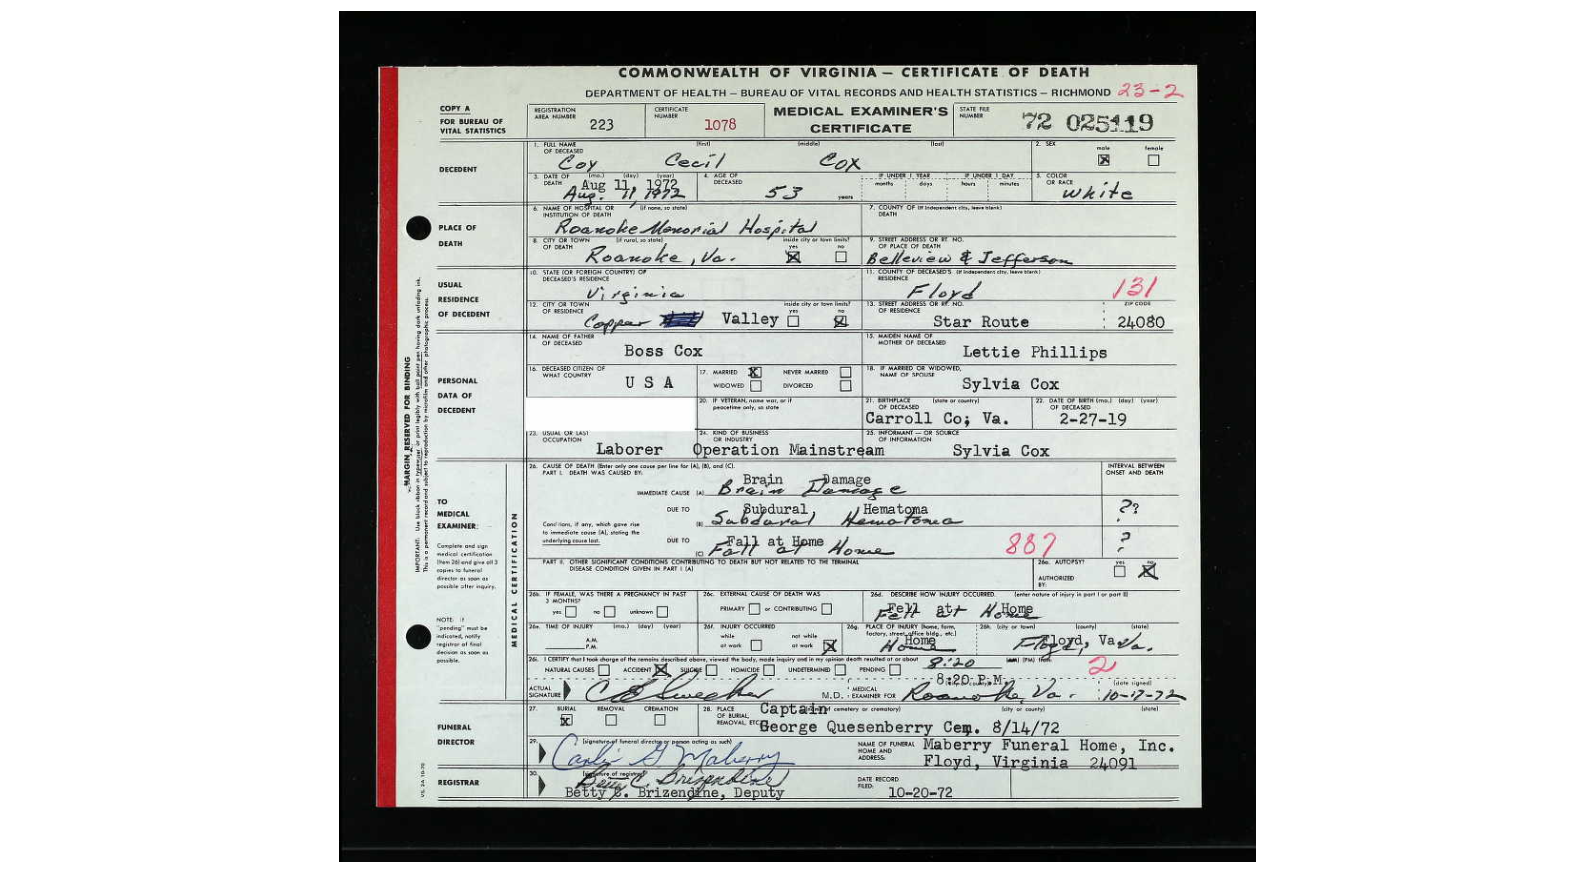 COMMONWEALTH OF VIRGINIA — CERTIFICATE OF DEATH
DEPARTMENT OF HEALTH — BUREAU OF VITAL RECORDS AND HEALTH STATISTICS — RICHMOND 23-2
COPY A
FOR BUREAU OF
VITAL STATISTICS
REGISTRATION
AREA NUMBER 223
CERTIFICATE
NUMBER 1078
MEDICAL EXAMINER'S
CERTIFICATE
STATE FILE
NUMBER 72 025119
DECEDENT
1. FULL NAME (first) (middle) (last)
OF DECEASED
Coy Cecil Cox
2. SEX male female
3. DATE OF (mo.) (day) (year)
DEATH Aug 11, 1972
Aug. 11, 1972
4. AGE OF
DECEASED
53 years
IF UNDER 1 YEAR IF UNDER 1 DAY
months days hours minutes
5. COLOR
OR RACE
White
PLACE OF
DEATH
6. NAME OF HOSPITAL OR (if none, so state)
INSTITUTION OF DEATH
Roanoke Memorial Hospital
7. COUNTY OF (if independent city, leave blank)
DEATH
8. CITY OR TOWN (if rural, so state) inside city or town limits?
OF DEATH yes no
Roanoke, Va.
9. STREET ADDRESS OR RT. NO.
OF PLACE OF DEATH
Belleview & Jefferson
USUAL
RESIDENCE
OF DECEDENT
10. STATE (OR FOREIGN COUNTRY) OF
DECEASED'S RESIDENCE
Virginia
11. COUNTY OF DECEASED'S (if independent city, leave blank)
RESIDENCE
Floyd 131
12. CITY OR TOWN inside city or town limits?
OF RESIDENCE yes no
Copper Valley
13. STREET ADDRESS OR RT. NO. ZIP CODE
OF RESIDENCE
Star Route 24080
PERSONAL
DATA OF
DECEDENT
14. NAME OF FATHER
OF DECEASED
Boss Cox
15. MAIDEN NAME OF
MOTHER OF DECEASED
Lettie Phillips
16. DECEASED CITIZEN OF
WHAT COUNTRY
U S A
17. MARRIED NEVER MARRIED
WIDOWED DIVORCED
18. IF MARRIED OR WIDOWED,
NAME OF SPOUSE
Sylvia Cox
20. IF VETERAN, name war, or if
peacetime only, so state
21. BIRTHPLACE (state or country)
OF DECEASED
Carroll Co; Va.
22. DATE OF BIRTH (mo.) (day) (year)
OF DECEASED
2-27-19
23. USUAL OR LAST
OCCUPATION
Laborer
24. KIND OF BUSINESS
OR INDUSTRY
Operation Mainstream
25. INFORMANT — OR SOURCE
OF INFORMATION
Sylvia Cox
TO
MEDICAL
EXAMINER:
Complete and sign
medical certification
(Item 26) and give all 3
copies to funeral
director as soon as
possible after inquiry.
NOTE: If
"pending" must be
indicated, notify
registrar of final
decision as soon as
possible.
MEDICAL CERTIFICATION
MARGIN RESERVED FOR BINDING
26. CAUSE OF DEATH (Enter only one cause per line for (A), (B), and (C).
PART I. DEATH WAS CAUSED BY:
INTERVAL BETWEEN
ONSET AND DEATH
IMMEDIATE CAUSE (A) Brain Damage
Brain Damage
DUE TO Subdural Hematoma ??
(B) Subdural Hematoma
Conditions, if any, which gave rise
to immediate cause (A), stating the
underlying cause last.
DUE TO Fall at Home ?
(C) Fall at Home 887
PART II. OTHER SIGNIFICANT CONDITIONS CONTRIBUTING TO DEATH BUT NOT RELATED TO THE TERMINAL
DISEASE CONDITION GIVEN IN PART I (A)
26a. AUTOPSY? yes no
AUTHORIZED
BY:
26b. IF FEMALE, WAS THERE A PREGNANCY IN PAST
3 MONTHS?
yes no unknown
26c. EXTERNAL CAUSE OF DEATH WAS
PRIMARY or CONTRIBUTING
26d. DESCRIBE HOW INJURY OCCURRED. (enter nature of injury in part I or part II)
Fell at Home
Fell at Home
26e. TIME OF INJURY (mo.) (day) (year)
A.M.
P.M.
26f. INJURY OCCURRED
while at work not while at work
26g. PLACE OF INJURY (home, farm,
factory, street, office bldg., etc.)
Home
Home
26h. (city or town) (county) (state)
Floyd, Va
Floyd, Va.
26i. I CERTIFY that I took charge of the remains described above, viewed the body, made inquiry and in my opinion death resulted at or about 8:20 (AM) (PM) from: 2
NATURAL CAUSES ACCIDENT SUICIDE HOMICIDE UNDETERMINED PENDING
8:20 P.M.
ACTUAL
SIGNATURE
M.D. - MEDICAL
EXAMINER FOR Roanoke, Va. (date signed)
10-17-72
FUNERAL
DIRECTOR
27. BURIAL REMOVAL CREMATION
28. PLACE (name of cemetery or crematory) (city or county) (state)
OF BURIAL,
REMOVAL, ETC.
Captain
George Quesenberry Cem. 8/14/72
29. (signature of funeral director or person acting as such)
Maberry
NAME OF FUNERAL
HOME AND
ADDRESS:
Maberry Funeral Home, Inc.
Floyd, Virginia 24091
REGISTRAR
30. (signature of registrar)
Betty C. Brizendine
Betty C. Brizendine, Deputy
DATE RECORD
FILED:
10-20-72